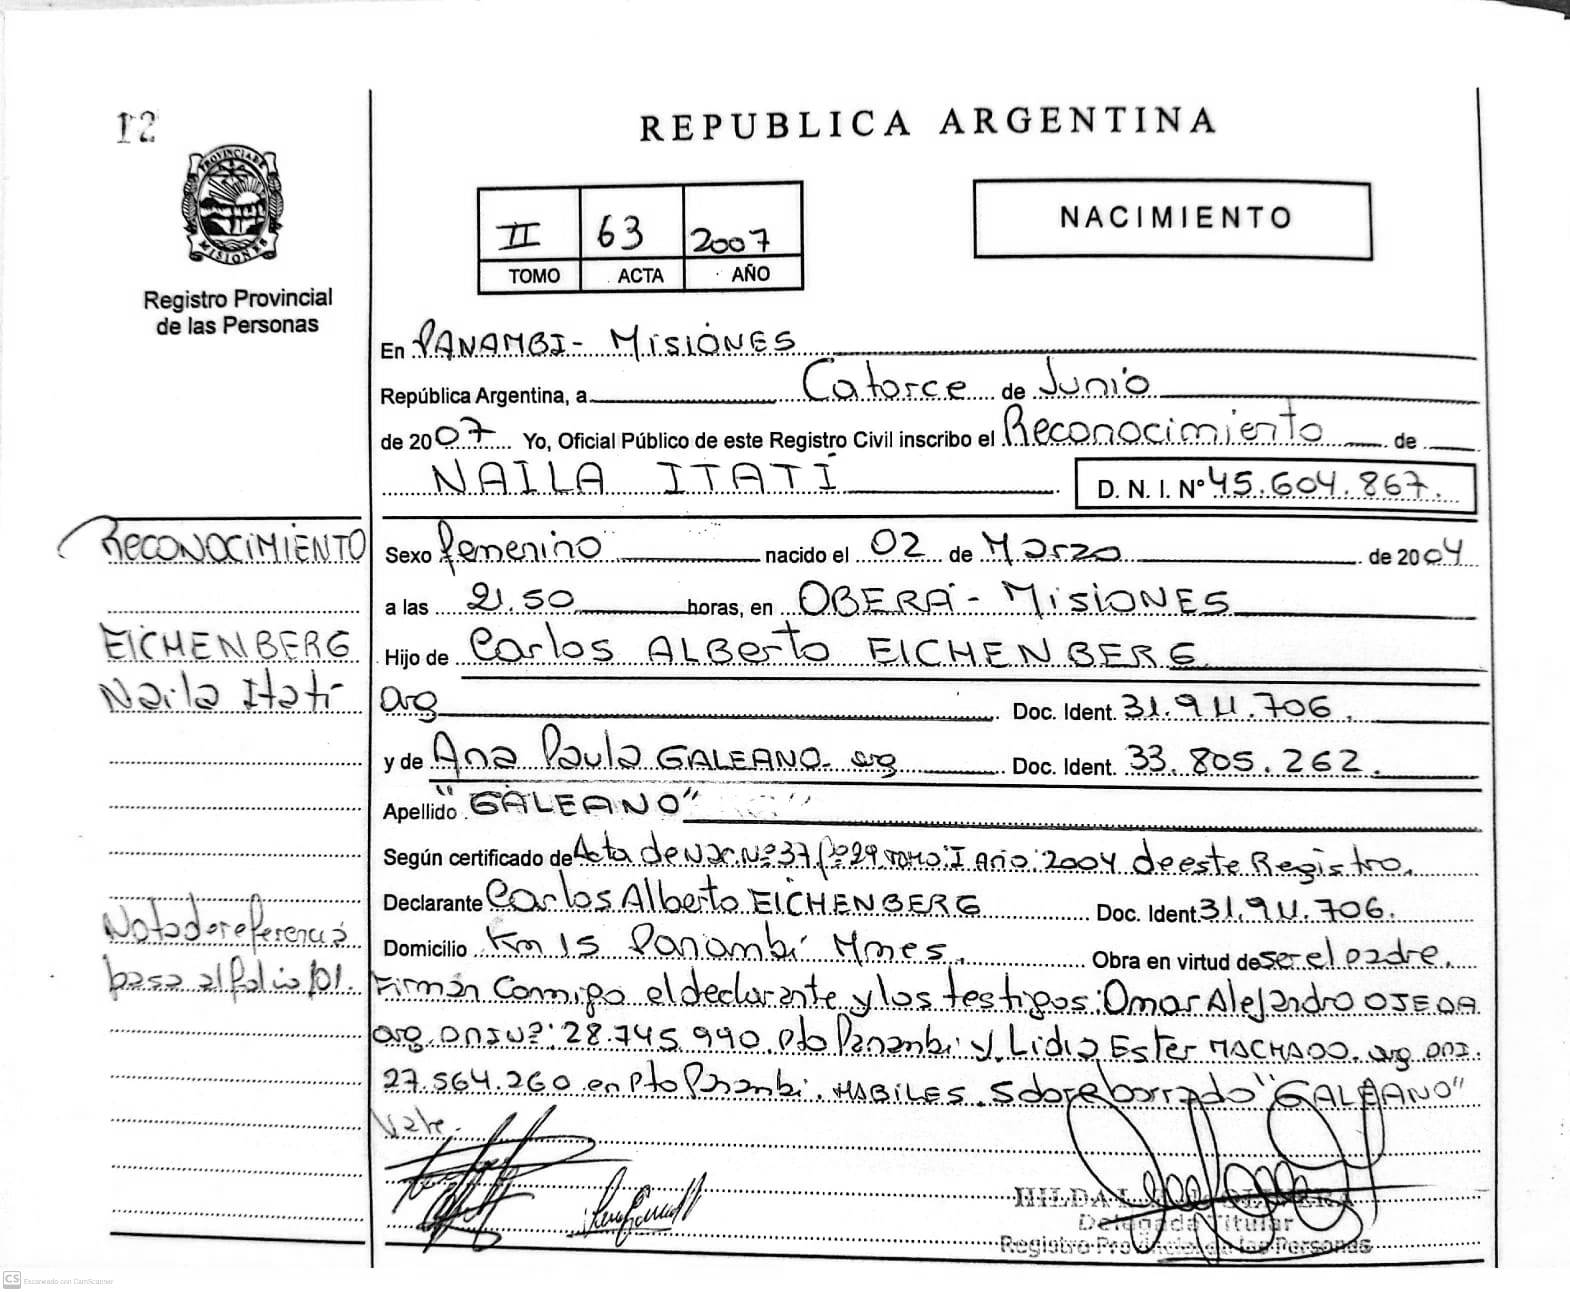 12
REPUBLICA ARGENTINA
PROVINCIA DE
MISIONES
Registro Provincial
de las Personas
II 63 2007
TOMO ACTA AÑO
NACIMIENTO
En PANAMBI- MISIONES
República Argentina, a Catorce de Junio
de 2007 Yo, Oficial Público de este Registro Civil inscribo el Reconocimiento de
NAILA ITATÍ D. N. I. Nº 45.604.867.
RECONOCIMIENTO
EICHENBERG
Naila Itatí
Nota de referencia
pasa al folio 101.
Sexo femenino nacido el 02 de Marzo de 2004
a las 21.50 horas, en OBERÁ - MISIONES
Hijo de Carlos ALBerto EICHENBERG
arg Doc. Ident. 31.911.706.
y de Ana Paula GALEANO. arg Doc. Ident. 33.805.262.
Apellido "GALEANO"
Según certificado de Acta de Nac. Nº 37 Fº 29 TOMO: I Año: 2004 de este Registro.
Declarante Carlos Alberto EICHENBERG Doc. Ident. 31.911.706.
Domicilio Km 15 Panambí Mnes. Obra en virtud de ser el padre.
Firmán Conmigo el declarante y los testigos: Omar Alejandro OJEDA
arg. DNI Nº: 28.745.990. Pto Panambí y Lidia Ester MACHADO. arg DNI.
27.564.260 en Pto Panambí. HABILES. Sobre borrado "GALEANO"
Vale.
HILDA
Delegada Titular
Registro Provincial de las Personas
CS Escaneado con CamScanner